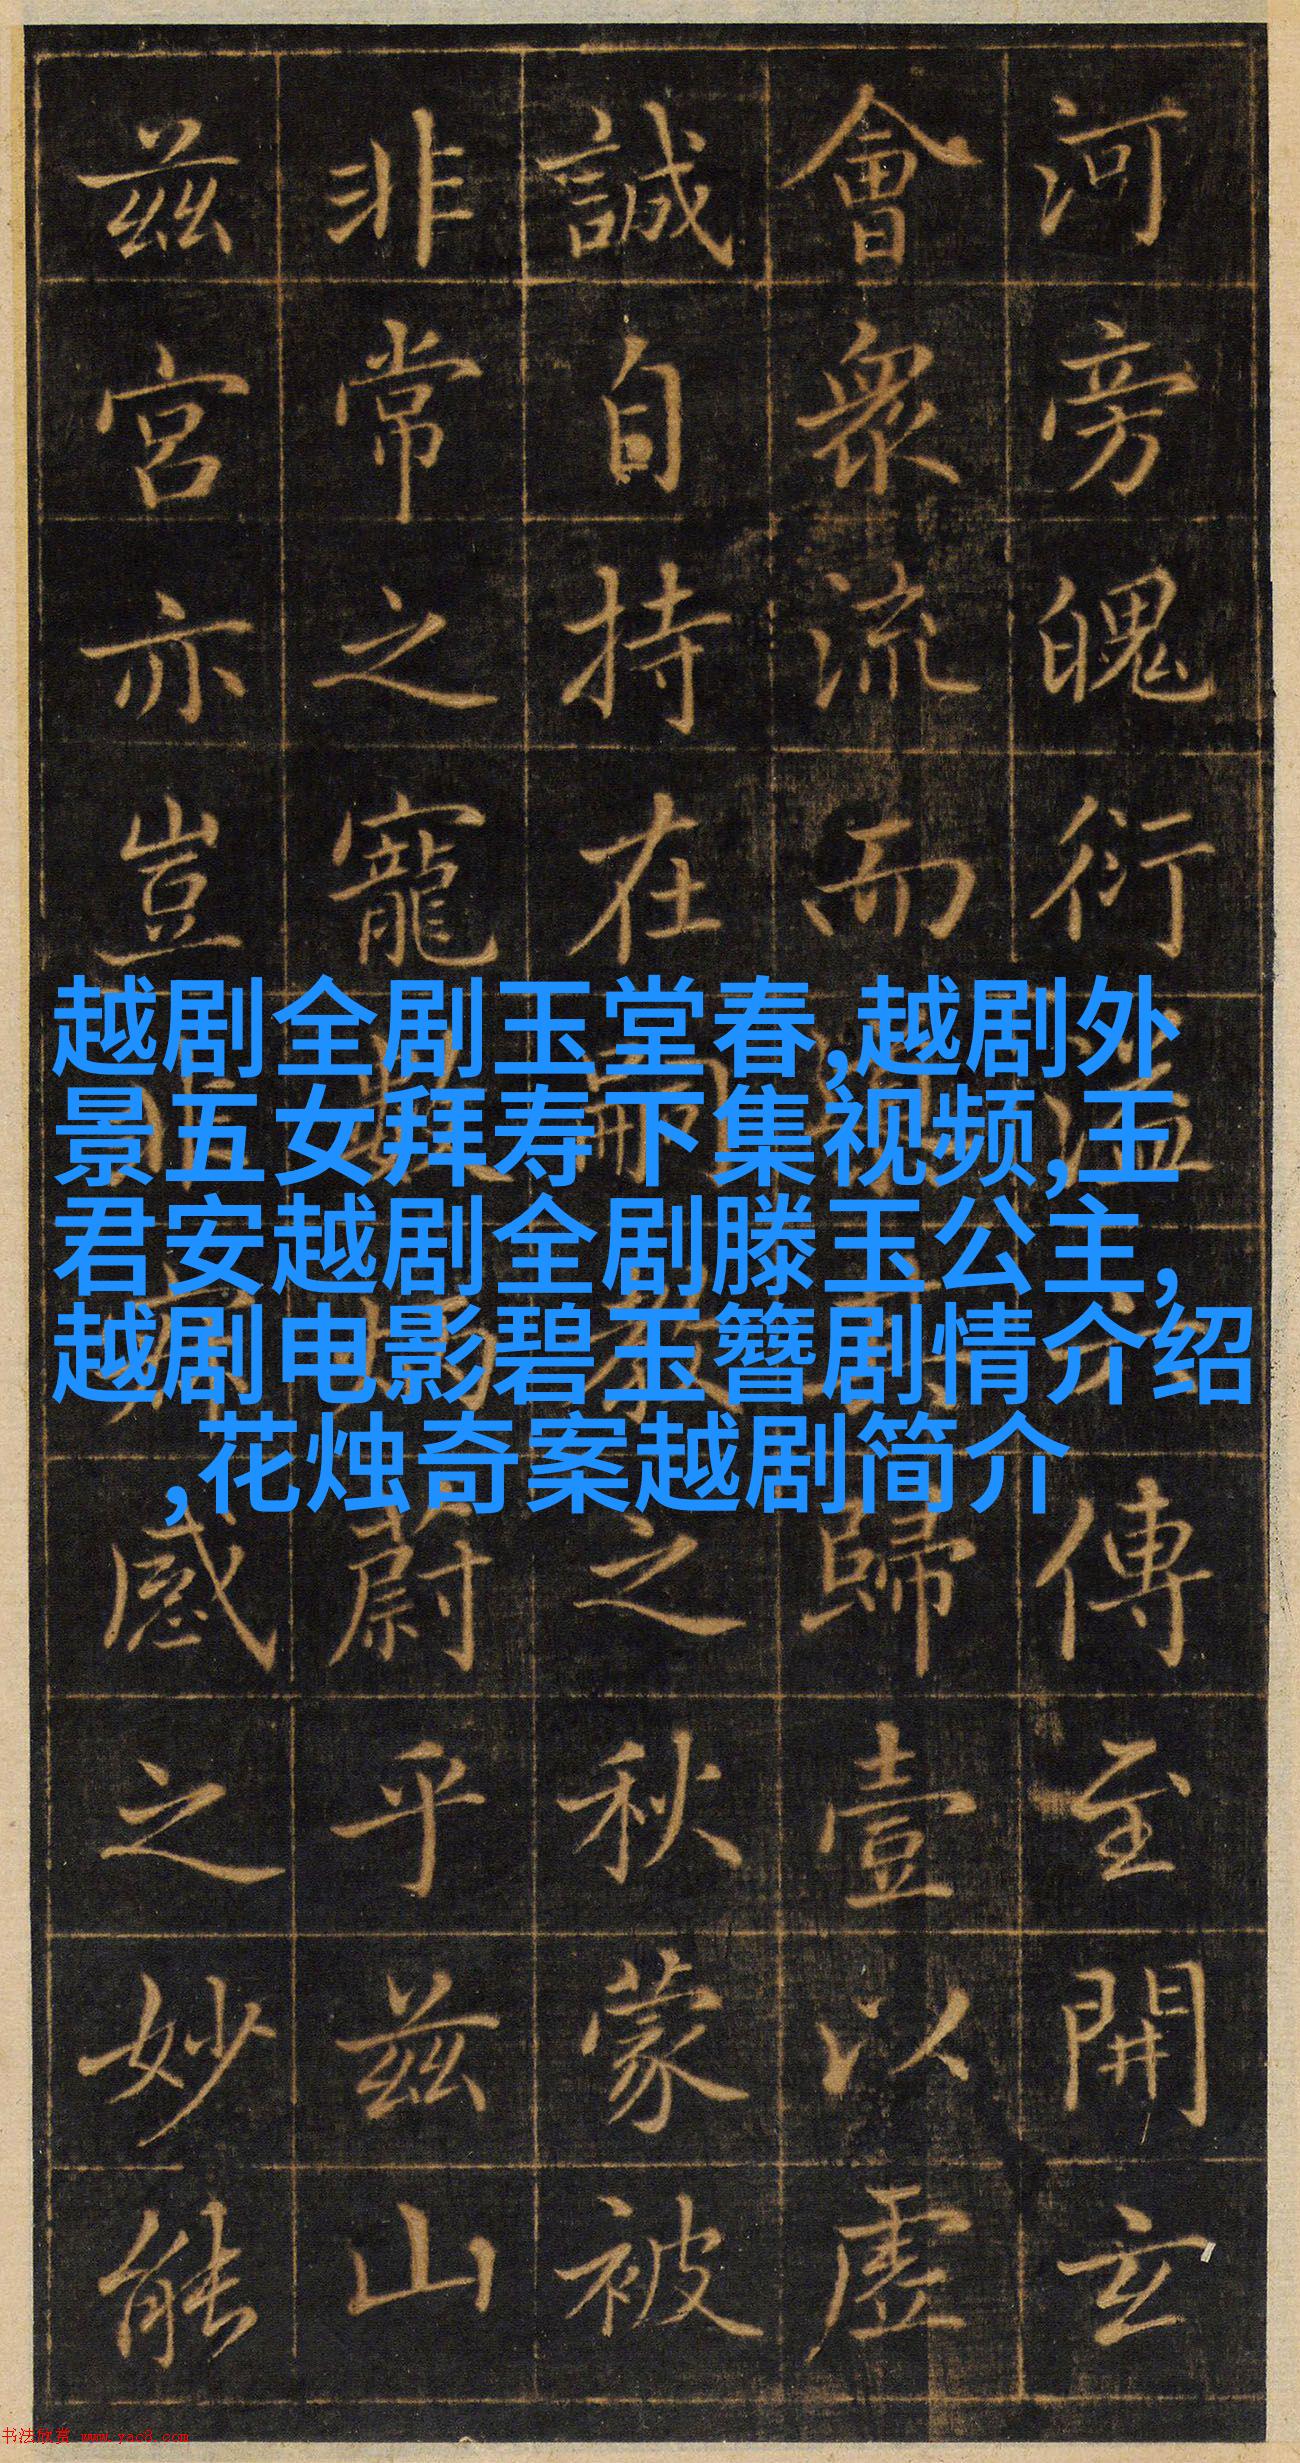 河旁魄衍溢傳至開玄
會衆流而歸壹以虛
誠自持在嗣教之秋蒙被
非常之寵數蔚乎茲山
茲宮亦豈感之妙能
越剧全剧玉堂春,越剧外
景五女拜寿下集视频,王
君安越剧全剧滕玉公主,
越剧电影碧玉簪剧情介绍
,花烛奇案越剧简介
书法欣赏 www.yac8.com